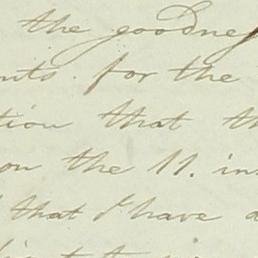 the goodness
nts. for the
tion that th
on the 11. in
that I have a